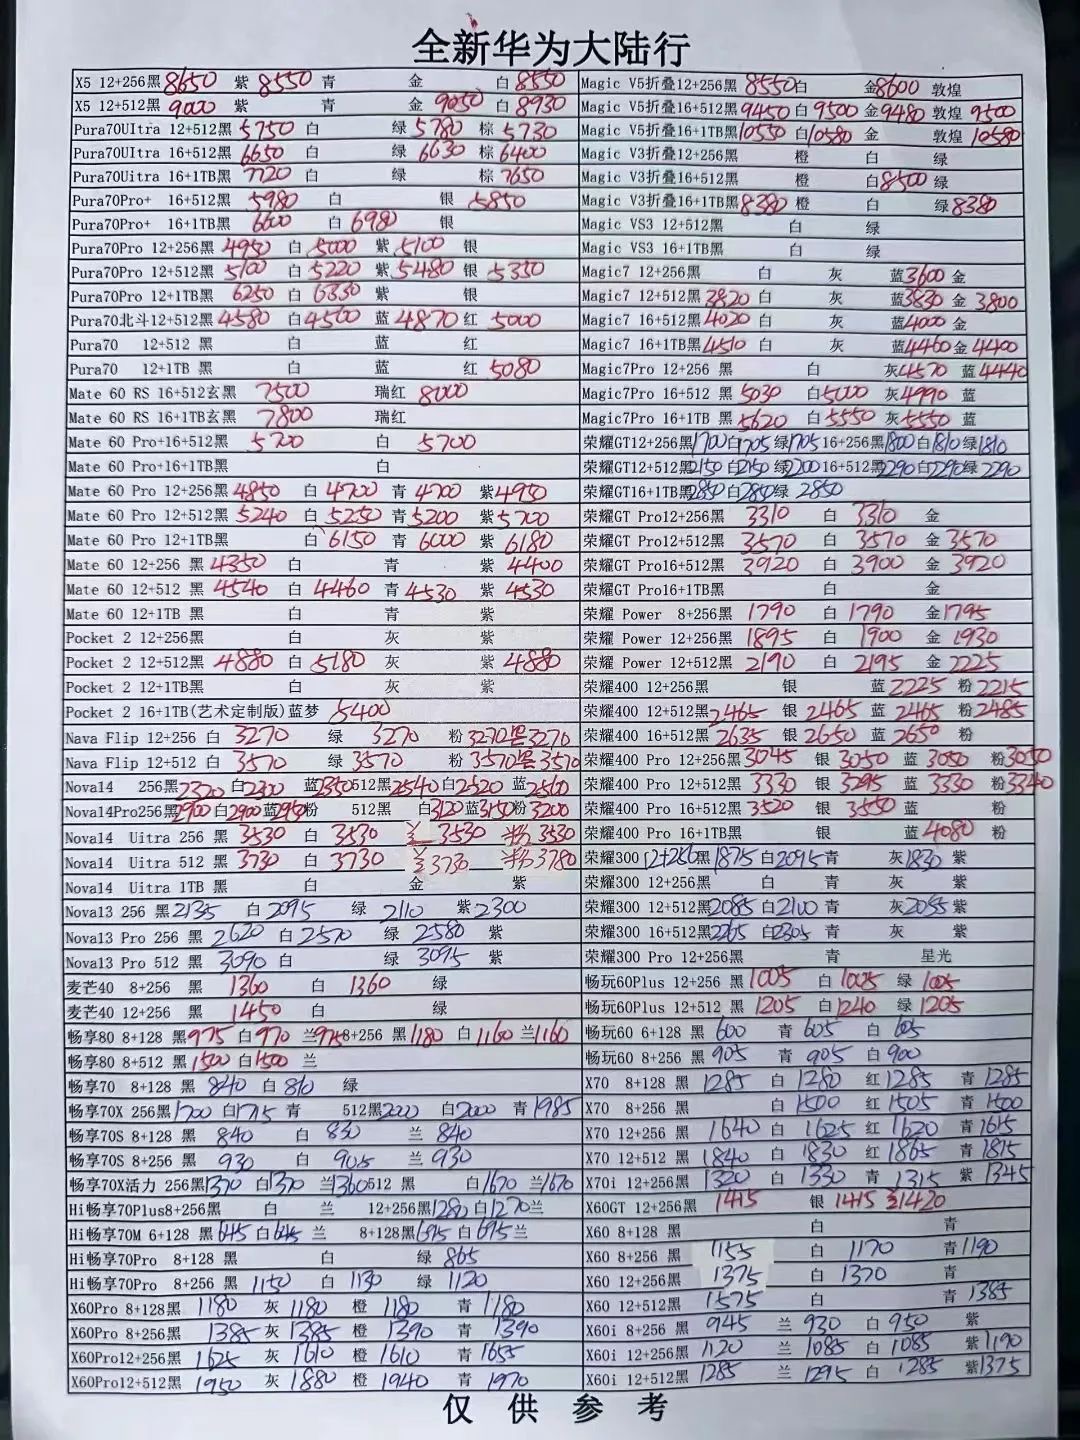 全新华为大陆行
X5 12+256黑 8650 紫 8550 青 金 白 8550
X5 12+512黑 9000 紫 青 金 9050 白 8930
Pura70UItra 12+512黑 5750 白 绿 5780 棕 5730
Pura70UItra 16+512黑 6650 白 绿 6630 棕 6400
Pura70Uitra 16+1TB黑 7720 白 绿 棕 7650
Pura70Pro+ 16+512黑 5980 白 银 5850
Pura70Pro+ 16+1TB黑 6600 白 6980 银
Pura70Pro 12+256黑 4950 白 5000 紫 5100 银
Pura70Pro 12+512黑 5100 白 5220 紫 5480 银 5350
Pura70Pro 12+1TB黑 6250 白 6330 紫 银
Pura70北斗12+512黑 4580 白 4500 蓝 4870 红 5000
Pura70 12+512 黑 白 蓝 红
Pura70 12+1TB 黑 白 蓝 红 5080
Mate 60 RS 16+512玄黑 7500 瑞红 8000
Mate 60 RS 16+1TB玄黑 7800 瑞红
Mate 60 Pro+16+512黑 5700 白 5700
Mate 60 Pro+16+1TB黑 白
Mate 60 Pro 12+256黑 4850 白 4700 青 4700 紫 4950
Mate 60 Pro 12+512黑 5240 白 5250 青 5200 紫 5700
Mate 60 Pro 12+1TB黑 白 6150 青 6000 紫 6180
Mate 60 12+256 黑 4350 白 青 紫 4400
Mate 60 12+512 黑 4540 白 4460 青 4530 紫 4530
Mate 60 12+1TB 黑 白 青 紫
Pocket 2 12+256黑 白 灰 紫
Pocket 2 12+512黑 4880 白 5180 灰 紫 4880
Pocket 2 12+1TB黑 白 灰 紫
Pocket 2 16+1TB(艺术定制版)蓝梦 5400
Nava Flip 12+256 白 3270 绿 3270 粉 3270 黑 3270
Nava Flip 12+512 白 3570 绿 3570 粉 3570 黑 3570
Nova14 256黑 2320 白 2300 蓝 2350 512黑 2540 白 2520 蓝 2560
Nova14Pro256黑 2900 白 2900 蓝 2950 粉 512黑 白 3120 蓝 3150 粉 3200
Nova14 Uitra 256 黑 3530 白 3530 金 3530 粉 3530
Nova14 Uitra 512 黑 3730 白 3730 金 3730 粉 3780
Nova14 Uitra 1TB 黑 白 金 紫
Nova13 256 黑 2135 白 2095 绿 2110 紫 2300
Nova13 Pro 256 黑 2620 白 2570 绿 2580 紫
Nova13 Pro 512 黑 3090 白 绿 3095 紫
麦芒40 8+256 黑 1360 白 1360 绿
麦芒40 12+256 黑 1450 白 绿
畅享80 8+128 黑 975 白 970 兰 975 8+256 黑 1180 白 1160 兰 1160
畅享80 8+512 黑 1500 白 1500 兰
畅享70 8+128 黑 840 白 810 绿
畅享70X 256黑 1700 白 1715 青 512黑 2000 白 2000 青 1985
畅享70S 8+128 黑 840 白 830 兰 840
畅享70S 8+256 黑 930 白 905 兰 930
畅享70X活力 256黑 1370 白 1370 兰 1360 512 黑 白 1670 兰 1670
Hi畅享70Plus8+256黑 白 兰 12+256黑 1280 白 1270 兰
Hi畅享70M 6+128 黑 645 白 645 兰 8+128黑 695 白 695 兰
Hi畅享70Pro 8+128 黑 白 绿 865
Hi畅享70Pro 8+256 黑 1150 白 1130 绿 1120
X60Pro 8+128黑 1180 灰 1180 橙 1180 青 1180
X60Pro 8+256黑 1385 灰 1385 橙 1390 青 1390
X60Pro12+256黑 1625 灰 1610 橙 1610 青 1655
X60Pro12+512黑 1950 灰 1880 橙 1940 青 1970
Magic V5折叠12+256黑 8550 白 金 8600 敦煌
Magic V5折叠16+512黑 9450 白 9500 金 9480 敦煌 9500
Magic V5折叠16+1TB黑 10550 白 10580 金 敦煌 10580
Magic V3折叠12+256黑 橙 白 绿
Magic V3折叠16+512黑 橙 白 8500 绿
Magic V3折叠16+1TB黑 8380 橙 白 绿 8380
Magic VS3 12+512黑 白 绿
Magic VS3 16+1TB黑 白 绿
Magic7 12+256黑 白 灰 蓝 3600 金
Magic7 12+512黑 3820 白 灰 蓝 3830 金 3800
Magic7 16+512黑 4020 白 灰 蓝 4000 金
Magic7 16+1TB黑 4510 白 灰 蓝 4460 金 4400
Magic7Pro 12+256 黑 白 灰 4570 蓝 4440
Magic7Pro 16+512 黑 5030 白 5000 灰 4990 蓝
Magic7Pro 16+1TB 黑 5620 白 5550 灰 5550 蓝
荣耀GT12+256黑 1700 白 1705 绿 1705 16+256黑 1800 白 1810 绿 1810
荣耀GT12+512黑 2150 白 2150 绿 2200 16+512黑 2290 白 2290 绿 2290
荣耀GT16+1TB黑 2850 白 2850 绿 2850
荣耀GT Pro12+256黑 3310 白 3310 金
荣耀GT Pro12+512黑 3570 白 3570 金 3570
荣耀GT Pro16+512黑 3920 白 3900 金 3920
荣耀GT Pro16+1TB黑 白 金
荣耀 Power 8+256黑 1790 白 1790 金 1795
荣耀 Power 12+256黑 1895 白 1900 金 1930
荣耀 Power 12+512黑 2190 白 2195 金 2225
荣耀400 12+256黑 银 蓝 2225 粉 2215
荣耀400 12+512黑 2465 银 2465 蓝 2465 粉 2485
荣耀400 16+512黑 2635 银 2650 蓝 2650 粉
荣耀400 Pro 12+256黑 3045 银 3050 蓝 3050 粉 3050
荣耀400 Pro 12+512黑 3330 银 3295 蓝 3330 粉 3340
荣耀400 Pro 16+512黑 3520 银 3550 蓝 粉
荣耀400 Pro 16+1TB黑 银 蓝 4080 粉
荣耀300 12+256黑 1875 白 2095 青 灰 1830 紫
荣耀300 12+256黑 白 青 灰 紫
荣耀300 12+512黑 2085 白 2100 青 灰 2055 紫
荣耀300 16+512黑 2265 白 2305 青 灰 紫
荣耀300 Pro 12+256黑 青 星光
畅玩60Plus 12+256 黑 1005 白 1005 绿 1005
畅玩60Plus 12+512 黑 1205 白 1240 绿 1205
畅玩60 6+128 黑 600 青 605 白 605
畅玩60 8+256 黑 905 青 905 白 900
X70 8+128 黑 1285 白 1280 红 1285 青 1285
X70 8+256 黑 白 1500 红 1505 青 1500
X70 12+256 黑 1640 白 1625 红 1620 青 1615
X70 12+512 黑 1840 白 1830 红 1865 青 1815
X70i 12+256 黑 1320 白 1330 青 1315 紫 1345
X60GT 12+256黑 1415 银 1415 金 1420
X60 8+128黑 白 青
X60 8+256黑 1155 白 1170 青 1190
X60 12+256黑 1375 白 1370 青
X60 12+512黑 1575 白 青 1385
X60i 8+256黑 945 兰 930 白 950 紫
X60i 12+256黑 1120 兰 1085 白 1085 紫 1190
X60i 12+512黑 1285 兰 1295 白 1285 紫 1375
仅供参考